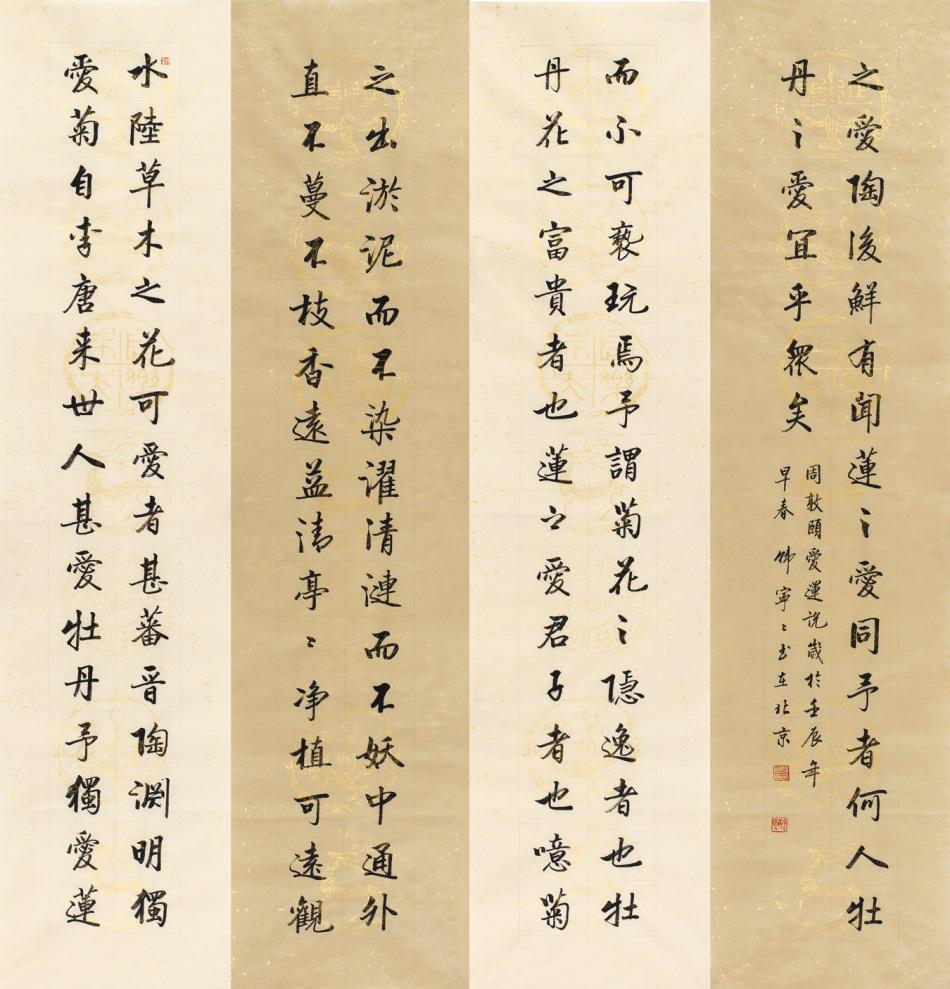 水陸草木之花可愛者甚蕃晋陶淵明獨
愛菊自李唐来世人甚愛牡丹予獨愛蓮
之出淤泥而不染濯清漣而不妖中通外
直不蔓不枝香遠益清亭〻净植可遠觀
而不可褻玩焉予謂菊花之隱逸者也牡
丹花之富貴者也蓮之愛君子者也噫菊
之愛陶後鮮有聞蓮之愛同予者何人牡
丹之愛宜乎眾矣
周敦頤愛蓮说歲於壬辰年
早春 韩寧〻书在北京